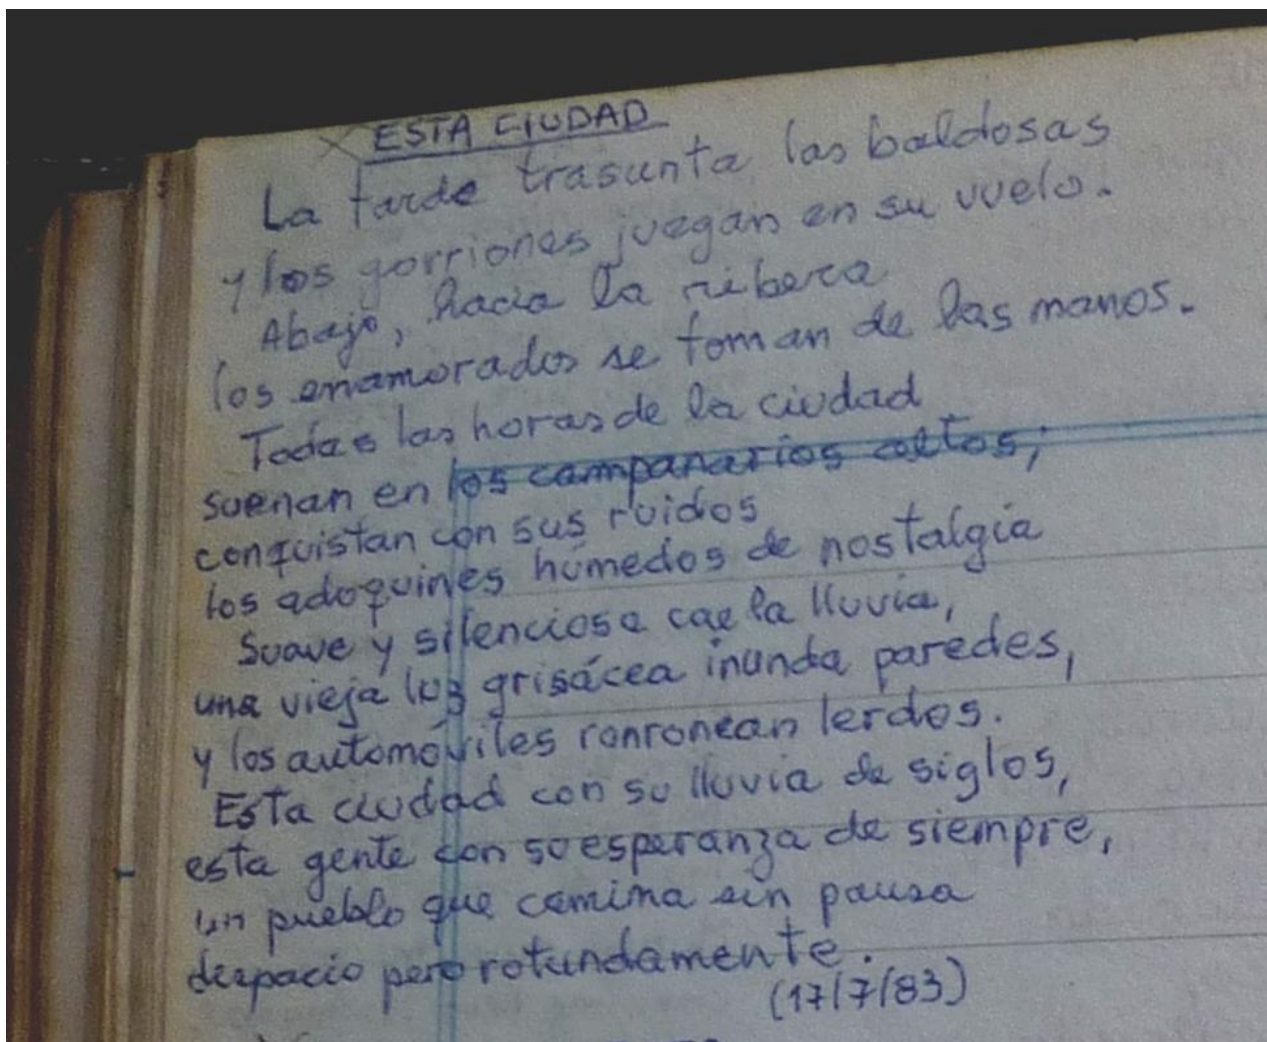 ESTA CIUDAD
La tarde trasunta las baldosas
y los gorriones juegan en su vuelo.
Abajo, hacia la ribera
los enamorados se toman de las manos.
Todas las horas de la ciudad
suenan en los campanarios altos,
conquistan con sus ruidos
los adoquines húmedos de nostalgia
Suave y silenciosa cae la lluvia,
una vieja luz grisácea inunda paredes,
y los automóviles ronronean lerdos.
Esta ciudad con su lluvia de siglos,
esta gente con su esperanza de siempre,
un pueblo que camina sin pausa
despacio pero rotundamente.
(17/7/83)